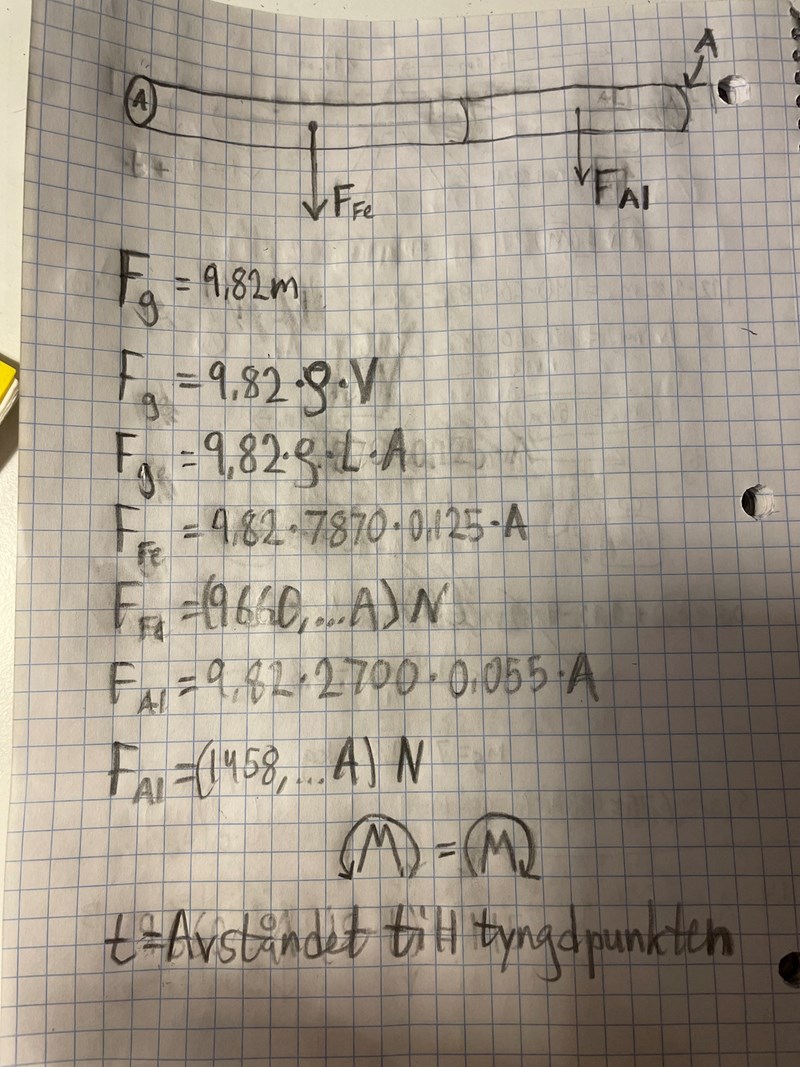 A
A
F_Fe
F_Al
F_g = 9,82m
F_g = 9,82·ρ·V
F_g = 9,82·ρ·L·A
F_Fe = 9,82·7870·0,125·A
F_Fe = (9660,...A) N
F_Al = 9,82·2700·0,055·A
F_Al = (1458,...A) N
M = M
t = Avståndet till tyngdpunkten